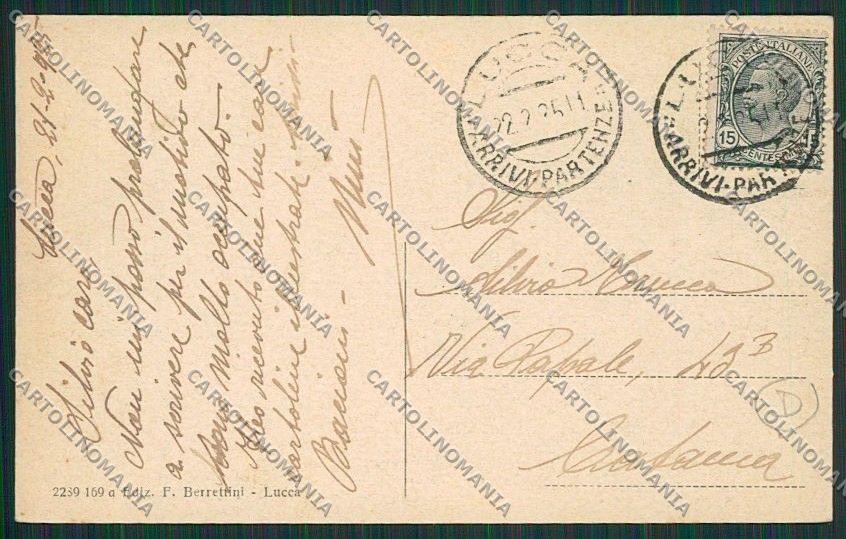 Lucca, 21-2-925
Silvio caro
Non mi posso prolungare
a scrivere per il motivo che
sono molto occupato.
Ho ricevuto le tue care
cartoline illustrate.
Bacioni-
Mimì-
LUCCA
22.2.25.11
ARRIVI-PARTENZE
LUCCA
ARRIVI-PARTENZE
POSTE ITALIANE
15 CENTESIMI 15
Sig.
Silvio
Via Papale, 43 B
Catania
D
2239 169 a Ediz. F. Berrettini - Lucca
CARTOLINOMANIA